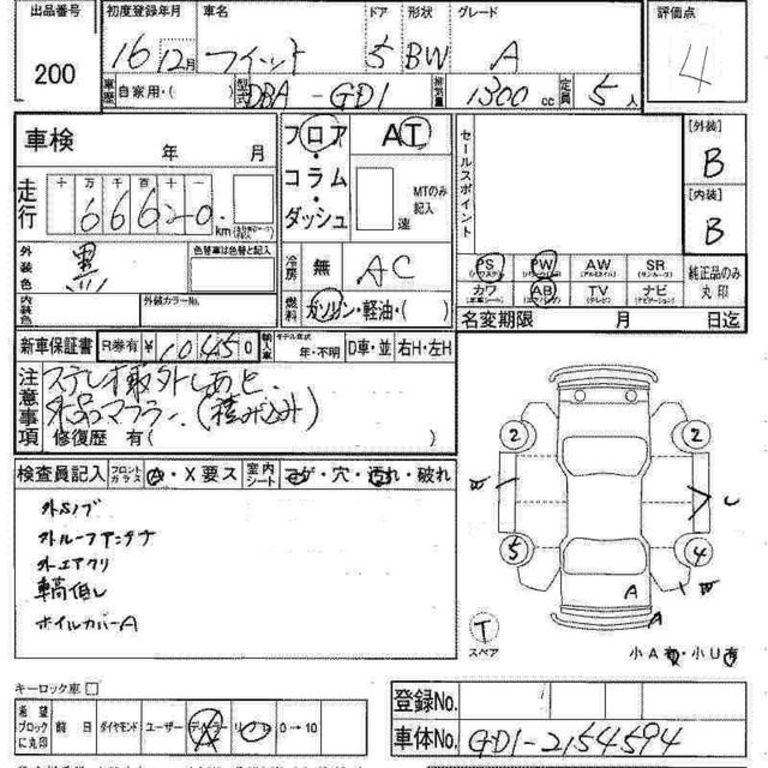 出品番号 初度登録年月 車名 ドア 形状 グレード 評価点
200 16 12月 フィット 5 BW A 4
車歴 自家用・( ) 型式 DBA-GD1 排気量 1300cc 定員 5人
車検 年 月 フロア AT セールスポイント [外装]
B
走行 十 万 千 百 十 一 コラム・ MTのみ記入 [内装]
66620 km ダッシュ 速 B
外装色 黒 色替車は色替と記入 冷房 無 AC PS PW AW SR 純正品のみ
カワ AB TV ナビ 丸印
内装色 外装カラーNo. 燃料 ガソリン・軽油・( ) 名変期限 月 日迄
新車保証書 R券有 ¥ 10450 輸入車 モデル年式 年・不明 D車・並 右H・左H
注意事項 ステレオ取外しあと.
外品マフラー.(積み込み)
修復歴 有( )
検査員記入 フロントガラス A・X要ス 室内シート コゲ・穴・汚れ・破れ
外Sノブ
外ルーフアンテナ
外エアクリ
車高低し
ホイルカバーA
2 2
5 4
A
A
T
スペア 小A有・小U有
キーロック車
希望ブロックに丸印 前日 ダイヤモンド ユーザー ディーラー 0→10
登録No.
車体No. GD1-2154594